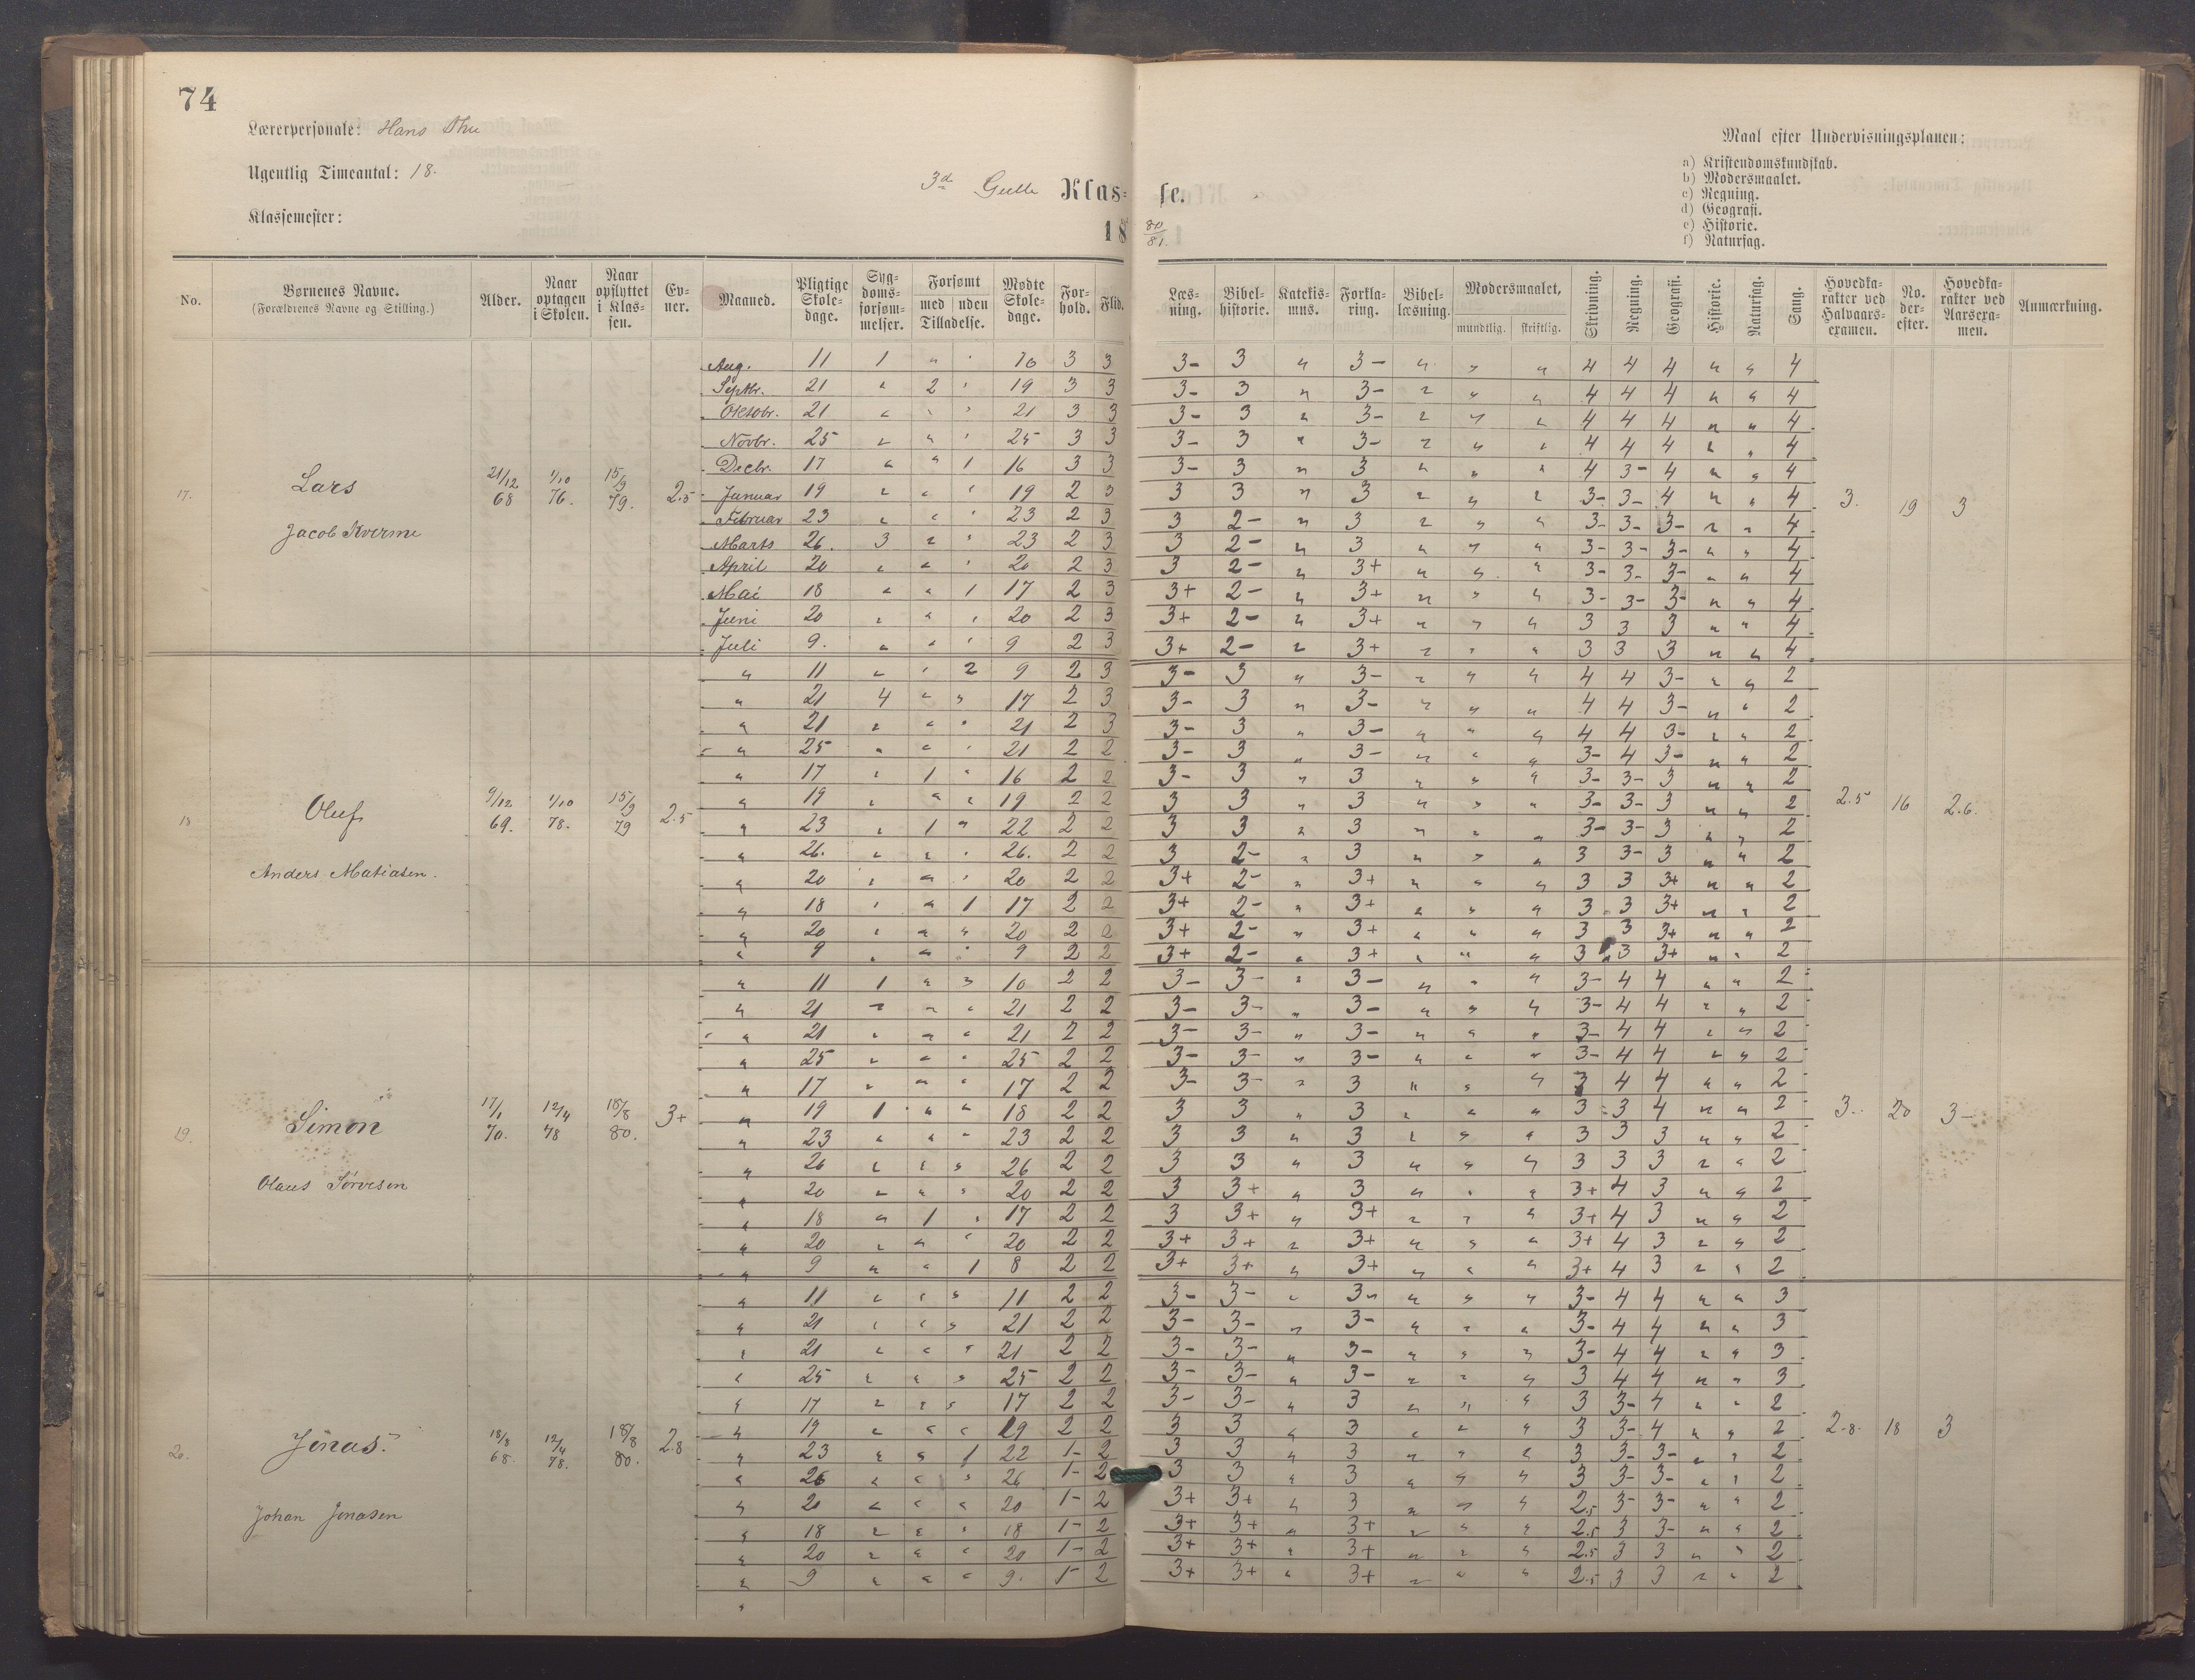 74
Lærerpersonale: Hans
Ugentlig Timeantal: 18.
Klassemester:
3d Klasse.
18 80/81.
Maal efter Undervisningsplanen:
a) Kristendomskundskab.
b) Modersmaalet.
c) Regning.
d) Geografi.
e) Historie.
f) Naturfag.
No. Børnenes Navne. (Forældrenes Navne og Stilling.) Alder. Naar optagen i Skolen. Naar opflyttet i Klassen. Evner. Maaned. Pligtige Skoledage. Sygdomsforsømmelser. Forsømt med uden Tilladelse. Mødte Skoledage. Forhold. Flid. Læsning. Bibelhistorie. Katekismus. Forklaring. Bibellæsning. Modersmaalet, mundtlig. skriftlig. Skrivning. Regning. Geografi. Historie. Naturfag. Sang. Hovedkarakter ved Halvaarsexamen. No. derefter. Hovedkarakter ved Aarsexamen. Anmærkning.
17. Lars Jacob Kverme 21/12 68 1/10 76. 15/9 79. 2.5 3. 19 3
Aug. 11 1 " " 10 3 3 3- 3 " 3- " " " 4 4 4 " " 4
Septbr. 21 " 2 " 19 3 3 3- 3 " 3- " " " 4 4 4 " " 4
Oktobr. 21 " " " 21 3 3 3- 3 " 3- " " " 4 4 4 " " 4
Novbr. 25 " " " 25 3 3 3- 3 " 3- " " " 4 4 4 " " 4
Decbr. 17 " " 1 16 3 3 3- 3 " 3 " " " 4 3- 4 " " 4
Januar 19 " " " 19 2 3 3 3 " 3 " " " 3- 3- 4 " " 4
Februar 23 " " " 23 2 3 3 2- " 3 " " " 3- 3- 3- " " 4
Marts 26. 3 " " 23 2 3 3 2- " 3 " " " 3- 3- 3- " " 4
April 20 " " " 20 2 3 3 2- " 3+ " " " 3- 3- 3- " " 4
Mai 18 " " 1 17 2 3 3+ 2- " 3+ " " " 3- 3- 3- " " 4
Juni 20 " " " 20 2 3 3+ 2- " 3+ " " " 3 3 3 " " 4
Juli 9. " " " 9 2 3 3+ 2- " 3+ " " " 3 3 3 " " 4
18 Oluf Anders Matiasen. 9/12 69. 1/10 78. 15/9 79 2.5 2.5 16 2.6.
" 11 " " 2 9 2 3 3- 3 " 3- " " " 4 4 3- " " 2
" 21 4 " " 17 2 3 3- 3 " 3- " " " 4 4 3- " " 2
" 21 " " " 21 2 3 3- 3 " 3- " " " 4 4 3- " " 2
" 25 " " " 21 2 2 3- 3 " 3- " " " 3- 4 3- " " 2
" 17 " 1 " 16 2 2 3- 3 " 3 " " " 3- 3- 3 " " 2
" 19 " " " 19 2 2 3 3 " 3 " " " 3- 3- 3 " " 2
" 23 " 1 " 22 2 2 3 3 " 3 " " " 3- 3- 3 " " 2
" 26. " " " 26. 2 2 3 2- " 3 " " " 3 3- 3 " " 2
" 20 " " " 20 2 2 3+ 2- " 3+ " " " 3 3 3+ " " 2
" 18 " " 1 17 2 2 3+ 2- " 3+ " " " 3 3 3+ " " 2
" 20 " " " 20 2 2 3+ 2- " 3+ " " " 3 3 3+ " " 2
" 9 " " " 9 2 2 3+ 2- " 3+ " " " 3 3 3+ " " 2
19. Simon Olaus Sørvesen 17/1 70. 12/4 78 18/8 80. 3+ 3. 20 3-
" 11 1 " " 10 2 2 3- 3- " 3- " " " 3- 4 4 " " 2
" 21 " " " 21 2 2 3- 3- " 3- " " " 3- 4 4 " " 2
" 21 " " " 21 2 2 3- 3- " 3- " " " 3- 4 4 " " 2
" 25 " " " 25 2 2 3- 3- " 3- " " " 3- 4 4 " " 2
" 17 " " " 17 2 2 3- 3- " 3 " " " 3 4 4 " " 2
" 19 1 " " 18 2 2 3 3 " 3 " " " 3 3 4 " " 2
" 23 " " " 23 2 2 3 3 " 3 " " " 3 3 3 " " 2
" 26 " " " 26 2 2 3 3 " 3 " " " 3 3 3 " " 2
" 20 " " " 20 2 2 3 3+ " 3 " " " 3+ 4 3 " " 2
" 18 " 1 " 17 2 2 3 3+ " 3+ " " " 3+ 4 3 " " 2
" 20 " " " 20 2 2 3+ 3+ " 3+ " " " 3+ 4 3 " " 2
" 9 " " 1 8 2 2 3+ 3+ " 3+ " " " 3+ 4 3 " " 2
20. Jonas. Johan Jonasen 18/8 68. 12/4 78. 18/8 80. 2.8 2.8. 18 3
" 11 " " " 11 2 2 3- 3- " 3- " " " 3- 4 4 " " 3
" 21 " " " 21 2 2 3- 3- " 3- " " " 3- 4 4 " " 3
" 21 " " " 21 2 2 3- 3- " 3- " " " 3- 4 4 " " 3
" 25 " " " 25 2 2 3- 3- " 3- " " " 3 4 4 " " 3
" 17 " " " 17 2 2 3- 3- " 3 " " " 3 3- 4 " " 2
" 19 " " " 19 2 2 3 3 " 3 " " " 3 3- 4 " " 2
" 23 " " 1 22 1- 2 3 3 " 3 " " " 3 3- 3- " " 2
" 26 " " " 26 1- 2 3 3 " 3 " " " 3 3- 3- " " 2
" 20 " " " 20 1- 2 3+ 3+ " 3 " " " 2.5 3- 3- " " 2
" 18 " " " 18 1- 2 3+ 3+ " 3+ " " " 2.5 3 3- " " 2
" 20 " " " 20 1- 2 3+ 3+ " 3+ " " " 2.5 3 3 " " 2
" 9 " " " 9. 1- 2 3+ 3+ " 3+ " " " 2.5 3 3 " " 2
"